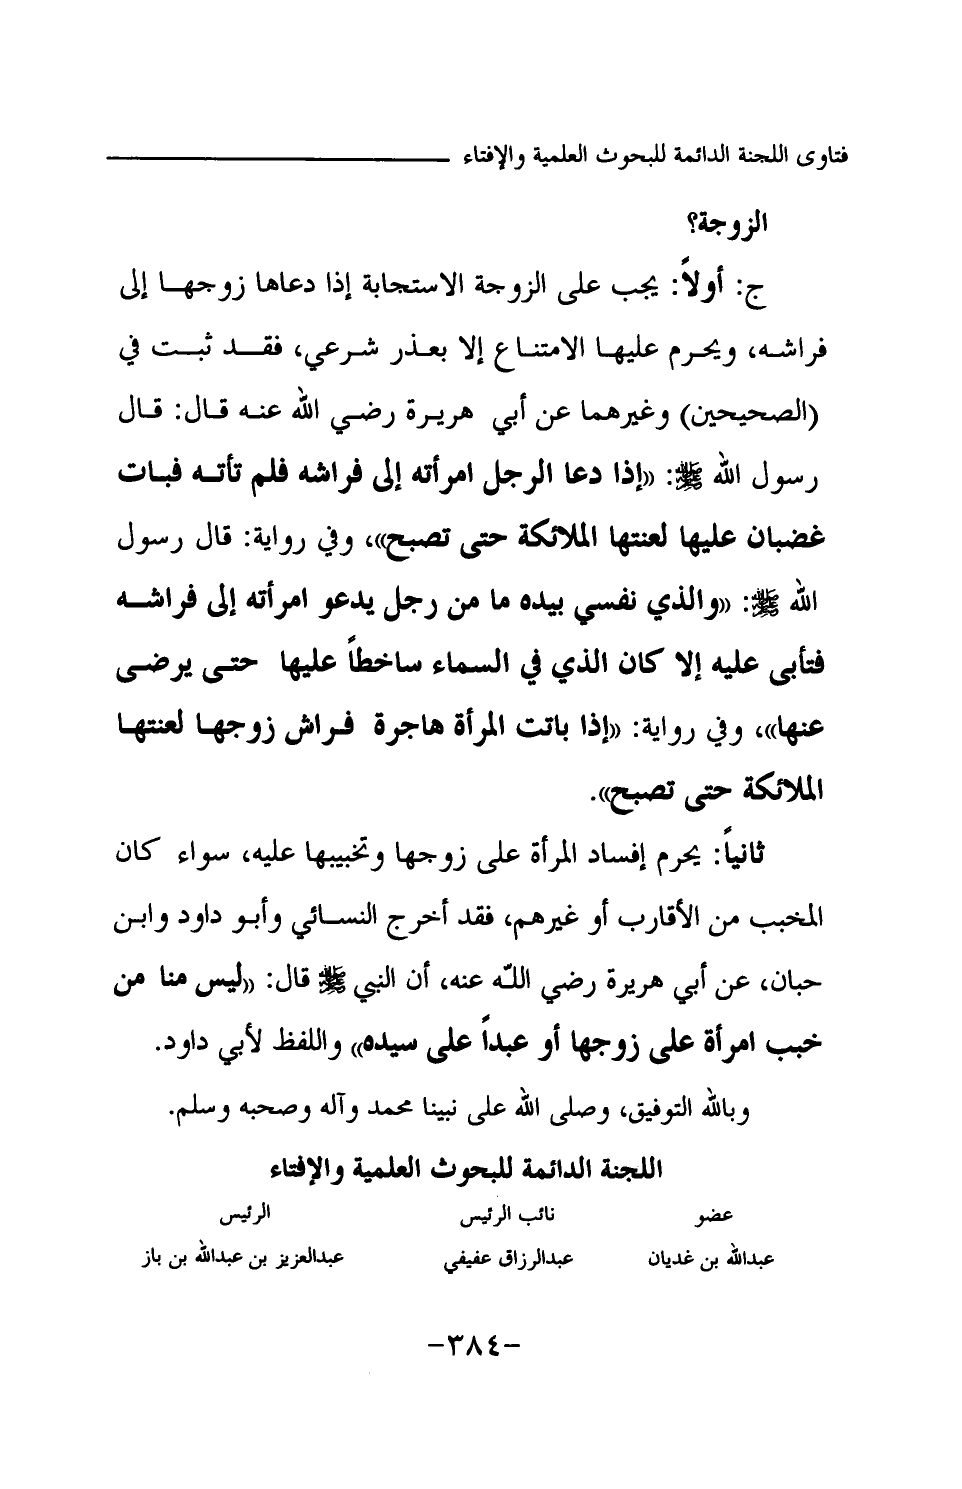 فتاوى اللجنة الدائمة للبحوث العلمية والإفتاء
الزوجة؟
ج: أولاً: يجب على الزوجة الاستجابة إذا دعاها زوجهـا إلى
فراشـه، ويحـرم عليهـا الامتنـاع إلا بعـذر شـرعي، فقـد ثبـت في
(الصحيحين) وغيرهما عن أبي هريرة رضي الله عنه قال: قال
رسول الله ﷺ: «إذا دعا الرجل امرأته إلى فراشه فلم تأتـه فبات
غضبان عليها لعنتها الملائكة حتى تصبح»، وفي رواية: قال رسول
الله ﷺ: «والذي نفسي بيده ما من رجل يدعو امرأته إلى فراشـه
فتأبى عليه إلا كان الذي في السماء ساخطاً عليها حتـى يرضـى
عنها»، وفي رواية: «إذا باتت المرأة هاجرة فـراش زوجهـا لعنتهـا
الملائكة حتى تصبح».
ثانياً: يحرم إفساد المرأة على زوجها وتخبيبها عليه، سواء كان
المخبب من الأقارب أو غيرهم، فقد أخرج النسـائي وأبـو داود وابـن
حبان، عن أبي هريرة رضي اللّه عنه، أن النبي ﷺ قال: «ليس منا من
خبب امرأة على زوجها أو عبداً على سيده» واللفظ لأبي داود.
وبالله التوفيق، وصلى الله على نبينا محمد وآله وصحبه وسلم.
اللجنة الدائمة للبحوث العلمية والإفتاء
عضو نائب الرئيس الرئيس
عبدالله بن غديان عبدالرزاق عفيفي عبدالعزيز بن عبدالله بن باز
-٣٨٤-